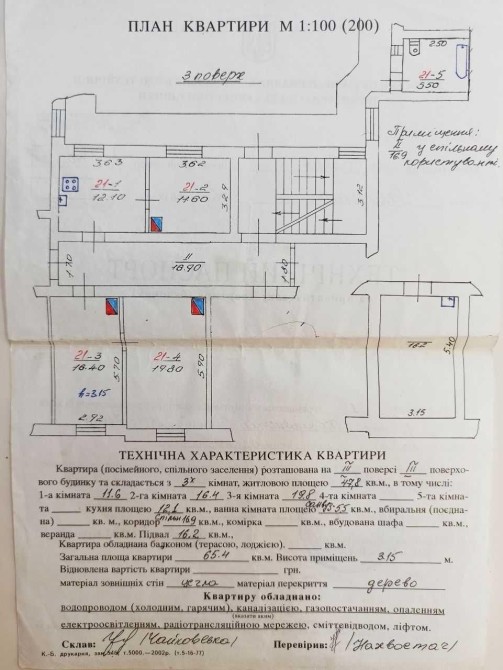 ПЛАН КВАРТИРИ М 1:100 (200)
3 поверх
250
21-5
350
Приміщення:
II
16.9
у спільному
користуванні.
3.63
21-1
12.10
3.62
21-2
11.60
3.29
3.12
II
16.90
1.70
1.80
21-3
16.40
5.70
h=3.15
2.92
21-4
19.80
5.90
5.40
3.15
ТЕХНІЧНА ХАРАКТЕРИСТИКА КВАРТИРИ
Квартира (посімейного, спільного заселення) розташована на III поверсі III поверхо-
вого будинку та складається з 3х кімнат, житловою площею 47.8 кв.м., в тому числі:
1-а кімната 11.6 2-га кімната 16.4 3-я кімната 19.8 4-та кімната 5-та кімна-
та кухня площею 12.1 кв.м., ванна кімната площею 5.5 кв.м., вбиральня (поєдна-
на) кв. м., коридор 16.9 кв.м., комірка кв.м., вбудована шафа кв.м.,
веранда кв.м. Підвал 16.2 кв.м.,
Квартира обладнана балконом (терасою, лоджією). кв.м.
Загальна площа квартири 65.4 кв.м. Висота приміщень 3.15 м.
Відновлена вартість квартири грн.
матеріал зовнішніх стін цегла матеріал перекриття дерево
Квартиру обладнано:
водопроводом (холодним, гарячим), каналізацією, газопостачанням, опаленням
(вказати яким)
електроосвітленням, радіотрансляційною мережею, сміттєвідводом, ліфтом.
Склав: (Чайковська) Перевірив: (Нахвостач)
К.-Б. друкарня, зам. 546, т.5000.—2002р. (т.5-15-77)